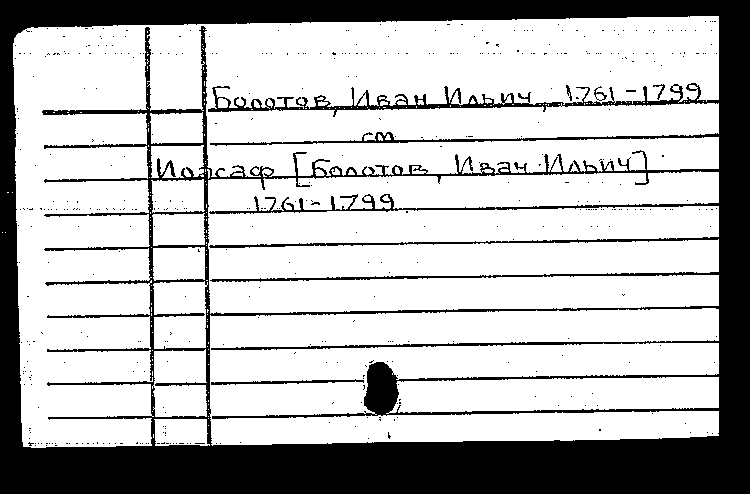 Болотов, Иван Ильич, 1761-1799
см
Иоасаф [Болотов, Иван Ильич]
1761-1799